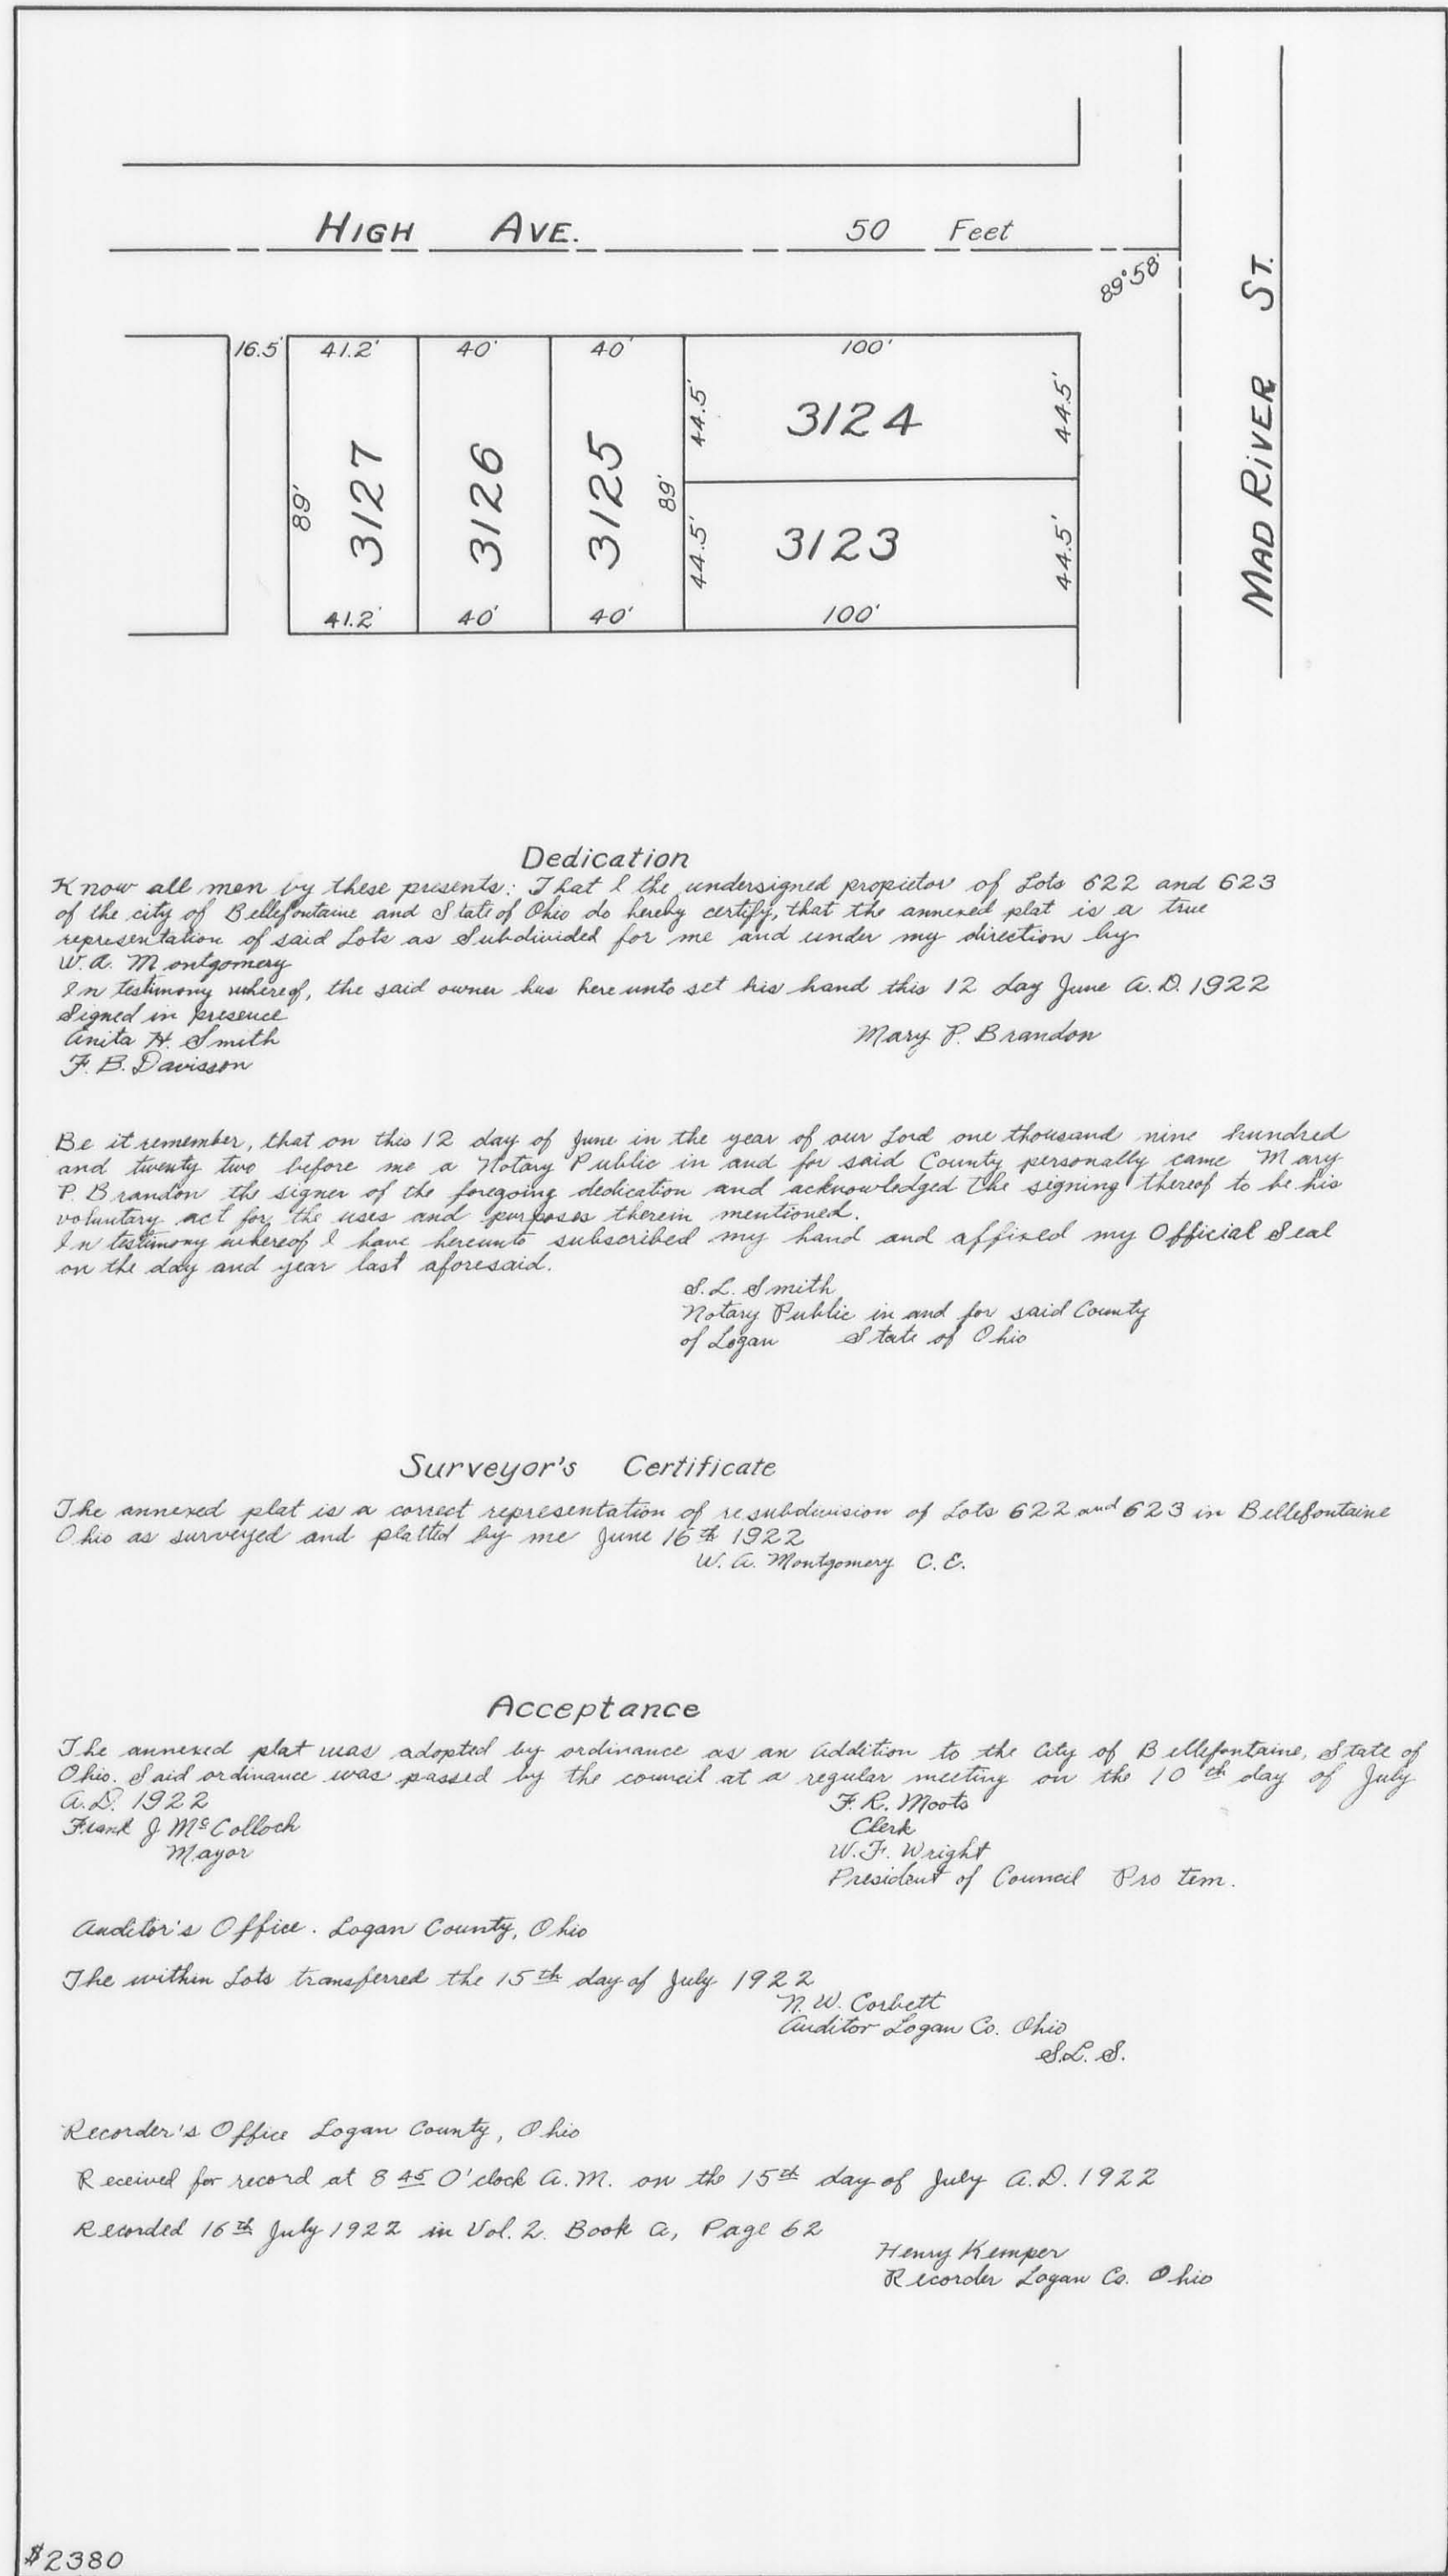 HIGH AVE. 50 Feet
89°58'
MAD RIVER ST.
16.5' 41.2' 40' 40' 100'
44.5' 3124 44.5'
89' 3127 3126 3125 89'
44.5' 3123 44.5'
41.2' 40' 40' 100'
Dedication
Know all men by these presents: That I the undersigned propietor of Lots 622 and 623
of the city of Bellefontaine and State of Ohio do hereby certify, that the annexed plat is a true
representation of said Lots as Subdivided for me and under my direction by
W.A. Montgomery
In testimony whereof, the said owner has hereunto set his hand this 12 day June A.D. 1922
Signed in presence
Anita H. Smith
Mary P. Brandon
F. B. Davisson
Be it remember, that on this 12 day of June in the year of our Lord one thousand nine hundred
and twenty two before me a Notary Public in and for said County personally came Mary
P. Brandon the signer of the foregoing dedication and acknowledged the signing thereof to be his
voluntary act for the uses and purposes therein mentioned.
In testimony whereof I have hereunto subscribed my hand and affixed my Official Seal
on the day and year last aforesaid.
S.L. Smith
Notary Public in and for said County
of Logan State of Ohio
Surveyor's Certificate
The annexed plat is a correct representation of resubdivision of Lots 622 and 623 in Bellefontaine
Ohio as surveyed and platted by me June 16th 1922
W. A. Montgomery C.E.
Acceptance
The annexed plat was adopted by ordinance as an Addition to the City of Bellefontaine, State of
Ohio. Said ordinance was passed by the council at a regular meeting on the 10th day of July
A.D. 1922
F. R. Moots
Frank J McColloch
Clerk
Mayor
W. F. Wright
President of Council Pro tem.
Auditor's Office. Logan County, Ohio
The within Lots transferred the 15th day of July 1922
N. W. Corbett
Auditor Logan Co. Ohio
S.L.S.
Recorder's Office Logan County, Ohio
Received for record at 8 45 O'clock A.M. on the 15th day of July A.D. 1922
Recorded 16th July 1922 in Vol. 2. Book A, Page 62
Henry Kemper
Recorder Logan Co. Ohio
$2380